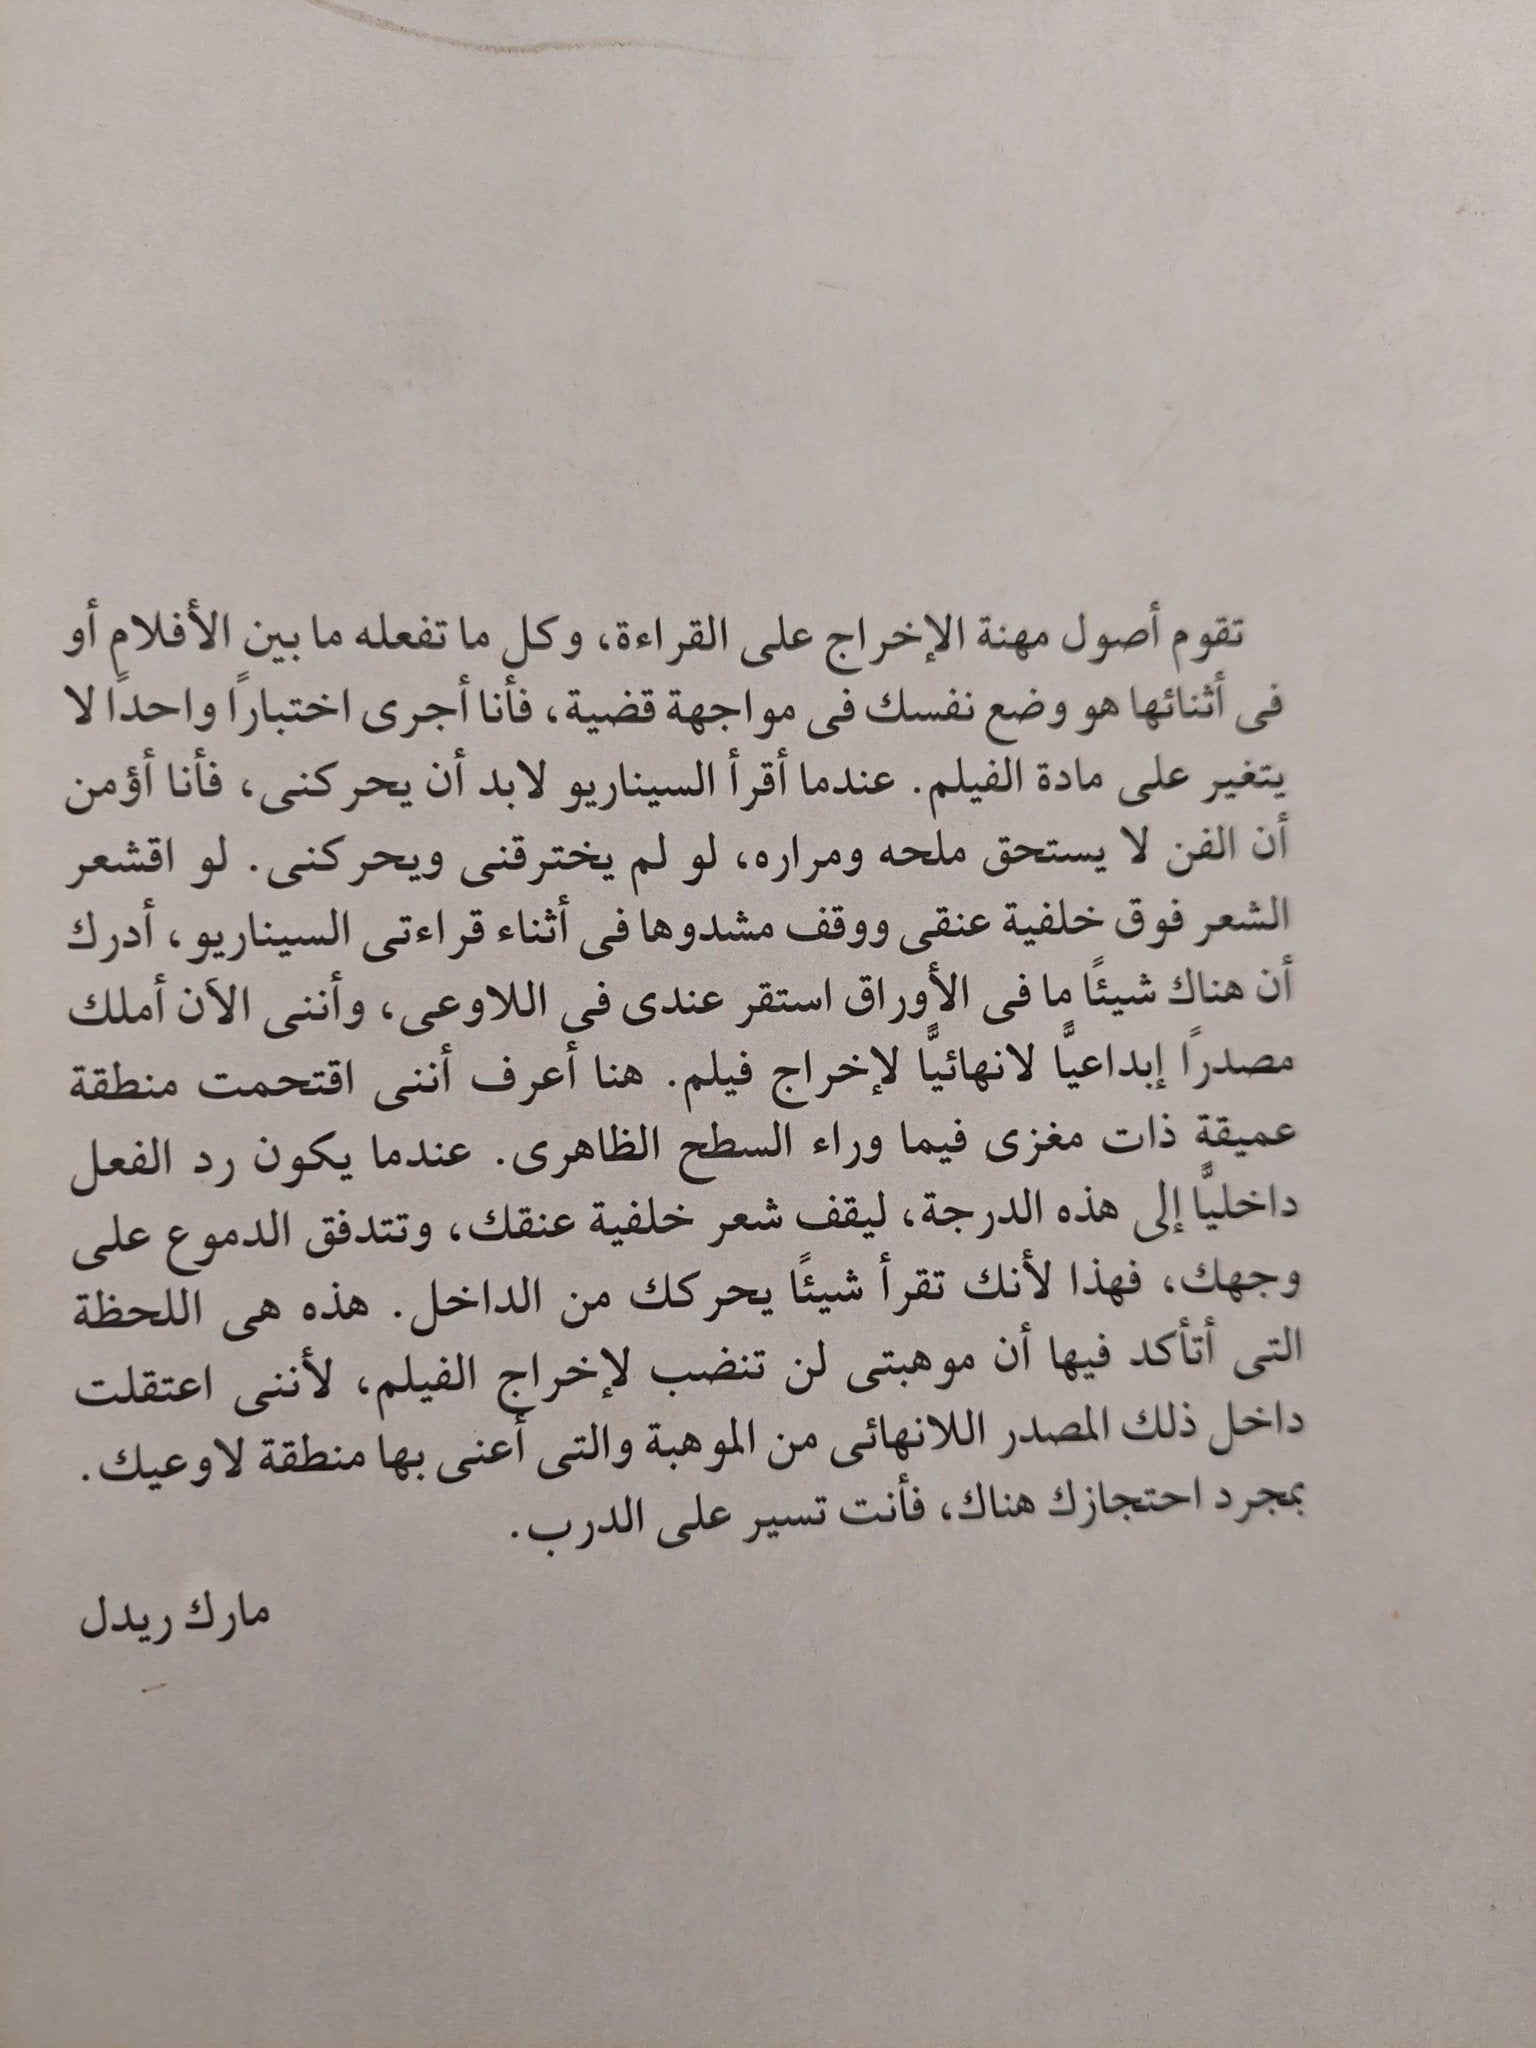 تقوم أصول مهنة الإخراج على القراءة، وكل ما تفعله ما بين الأفلام أو
فى أثنائها هو وضع نفسك فى مواجهة قضية، فأنا أجرى اختبارًا واحدًا لا
يتغير على مادة الفيلم. عندما أقرأ السيناريو لابد أن يحركنى، فأنا أؤمن
أن الفن لا يستحق ملحه ومراره، لو لم يخترقنى ويحركنى. لو اقشعر
الشعر فوق خلفية عنقى ووقف مشدوها فى أثناء قراءتى السيناريو، أدرك
أن هناك شيئًا ما فى الأوراق استقر عندى فى اللاوعى، وأننى الآن أملك
مصدرًا إبداعيًّا لانهائيًّا لإخراج فيلم. هنا أعرف أننى اقتحمت منطقة
عميقة ذات مغزى فيما وراء السطح الظاهرى. عندما يكون رد الفعل
داخليًّا إلى هذه الدرجة، ليقف شعر خلفية عنقك، وتتدفق الدموع على
وجهك، فهذا لأنك تقرأ شيئًا يحركك من الداخل. هذه هى اللحظة
التى أتأكد فيها أن موهبتى لن تنضب لإخراج الفيلم، لأننى اعتقلت
داخل ذلك المصدر اللانهائى من الموهبة والتى أعنى بها منطقة لاوعيك.
بمجرد احتجازك هناك، فأنت تسير على الدرب.
مارك ريدل